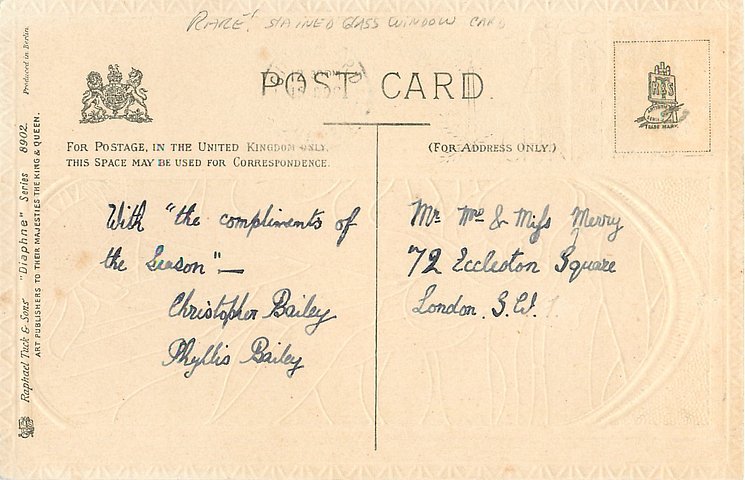 RARE! STAINED GLASS WINDOW CARD
POST CARD
FOR POSTAGE, IN THE UNITED KINGDOM ONLY,
THIS SPACE MAY BE USED FOR CORRESPONDENCE.
(FOR ADDRESS ONLY.)
RTS
TRADE MARK.
With "the compliments of
the Season"—
Christopher Bailey
Phyllis Bailey
Mr. Mrs & Miss Merry
72 Eccleston Square
London. S.W.
Raphael Tuck & Sons "Diaphne" Series 8902.
ART PUBLISHERS TO THEIR MAJESTIES THE KING & QUEEN.
Produced in Berlin.